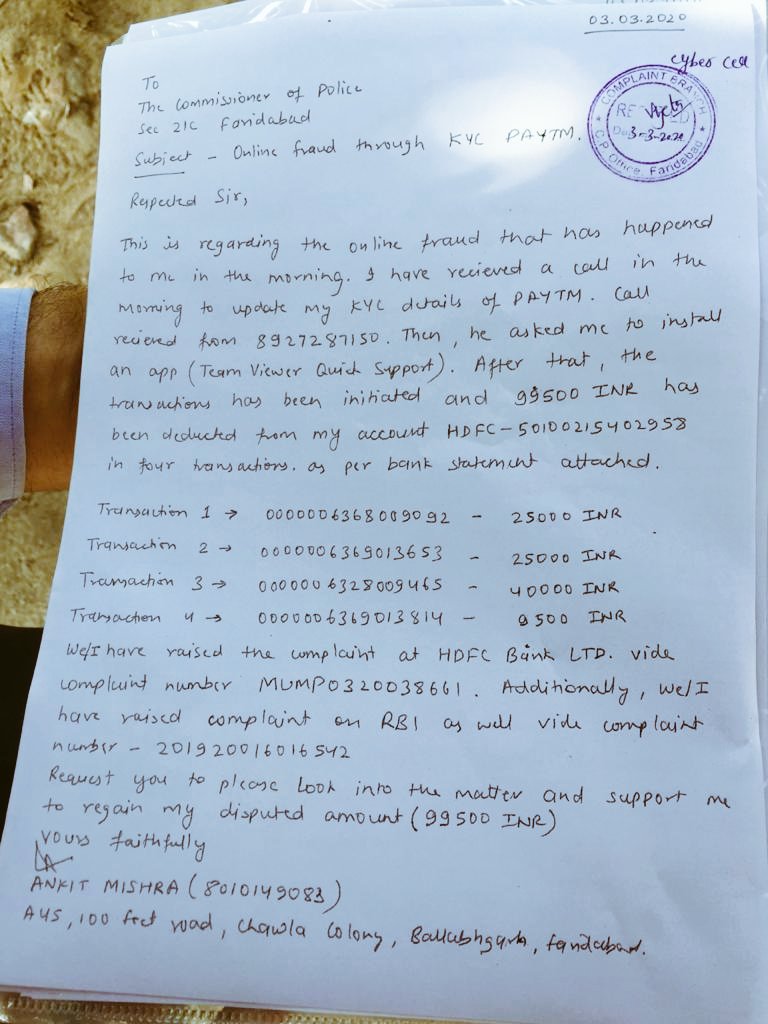 03.03.2020
cyber cell
COMPLAINT BRANCH
RECEIVED
3-3-2020
C.P. Office, Faridabad
To
The Commissioner of Police
Sec 21C Faridabad
Subject - Online fraud through KYC PAYTM.
Respected Sir,
This is regarding the online fraud that has happened
to me in the morning. I have recieved a call in the
morning to update my KYC details of PAYTM. Call
recieved from 8927287150. Then, he asked me to install
an app (Team Viewer Quick Support). After that, the
transactions has been initiated and 99500 INR has
been deducted from my account HDFC-50100215402958
in four transactions. as per bank statement attached.
Transaction 1 → 0000006368009092 - 25000 INR
Transaction 2 → 0000006369013653 - 25000 INR
Transaction 3 → 0000006328009465 - 40000 INR
Transaction 4 → 0000006369013814 - 9500 INR
We/I have raised the complaint at HDFC Bank LTD. vide
complaint number MUMP0320038661. Additionally, we/I
have raised complaint on RBI as well vide complaint
number - 201920016016542
Request you to please look into the matter and support me
to regain my disputed amount (99500 INR)
Yours faithfully
ANKIT MISHRA (8010149083)
A45, 100 feet road, Chawla Colony, Ballabhgarh, faridabad.